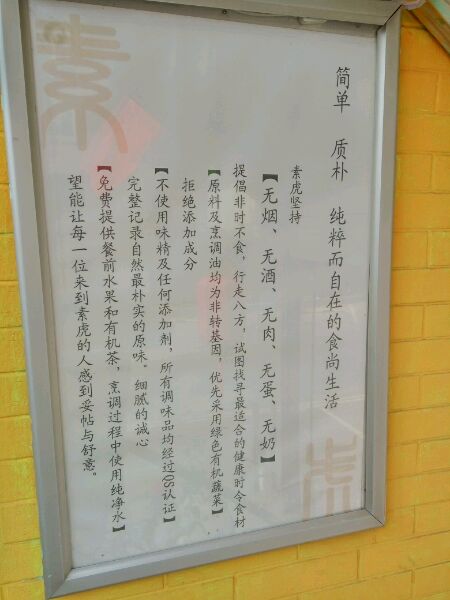 简单 质朴 纯粹而自在的食尚生活
素虎坚持
【无烟、无酒、无肉、无蛋、无奶】
提倡非时不食，行走八方，试图找寻最适合的健康时令食材
【原料及烹调油均为非转基因，优先采用绿色有机蔬菜】
拒绝添加成分
【不使用味精及任何添加剂，所有调味品均经过QS认证】
完整记录自然最朴实的原味。细腻的诚心
【免费提供餐前水果和有机茶，烹调过程中使用纯净水】
望能让每一位来到素虎的人感到妥帖与舒意。
素
虎